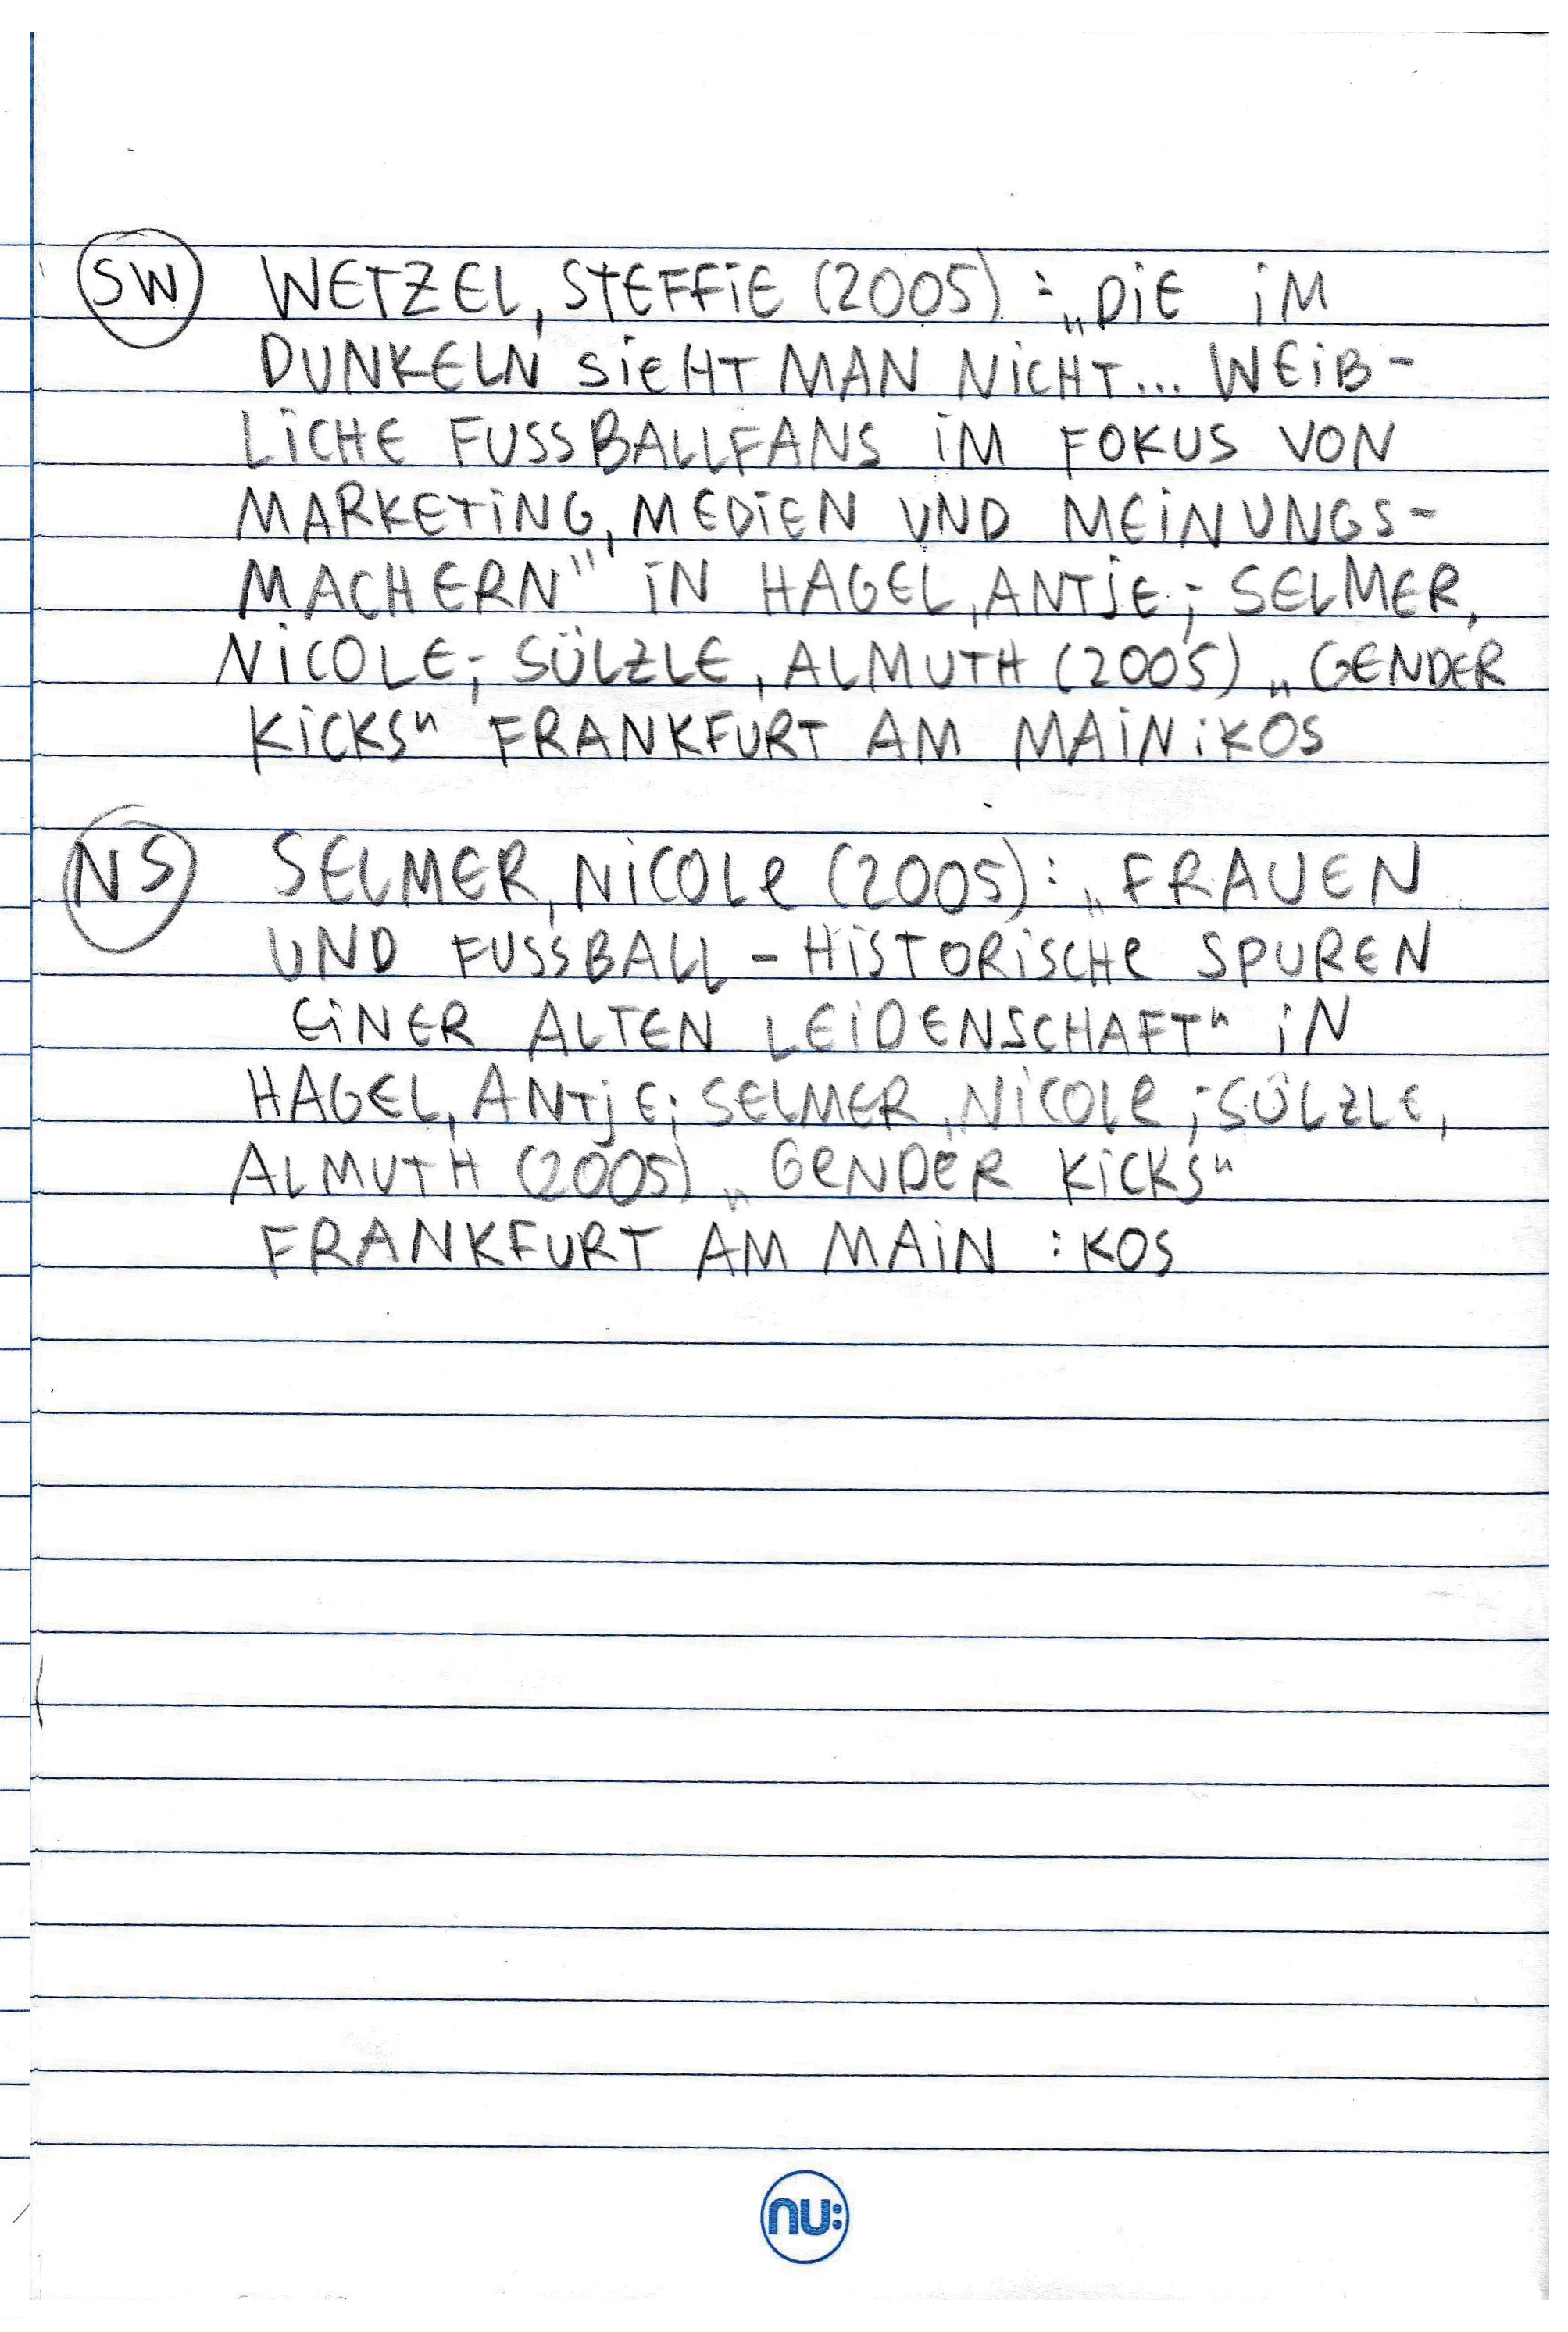 SW WETZEL, STEFFIE (2005): „DIE IM
DUNKELN SIEHT MAN NICHT... WEIB-
LICHE FUSSBALLFANS IM FOKUS VON
MARKETING, MEDIEN UND MEINUNGS-
MACHERN" IN HAGEL, ANTJE; SELMER,
NICOLE; SÜLZLE, ALMUTH (2005) „GENDER
KICKS" FRANKFURT AM MAIN: KOS
NS SELMER, NICOLE (2005): „FRAUEN
UND FUSSBALL - HISTORISCHE SPUREN
EINER ALTEN LEIDENSCHAFT" IN
HAGEL, ANTJE; SELMER, NICOLE; SÜLZLE,
ALMUTH (2005) „GENDER KICKS"
FRANKFURT AM MAIN : KOS
nu: